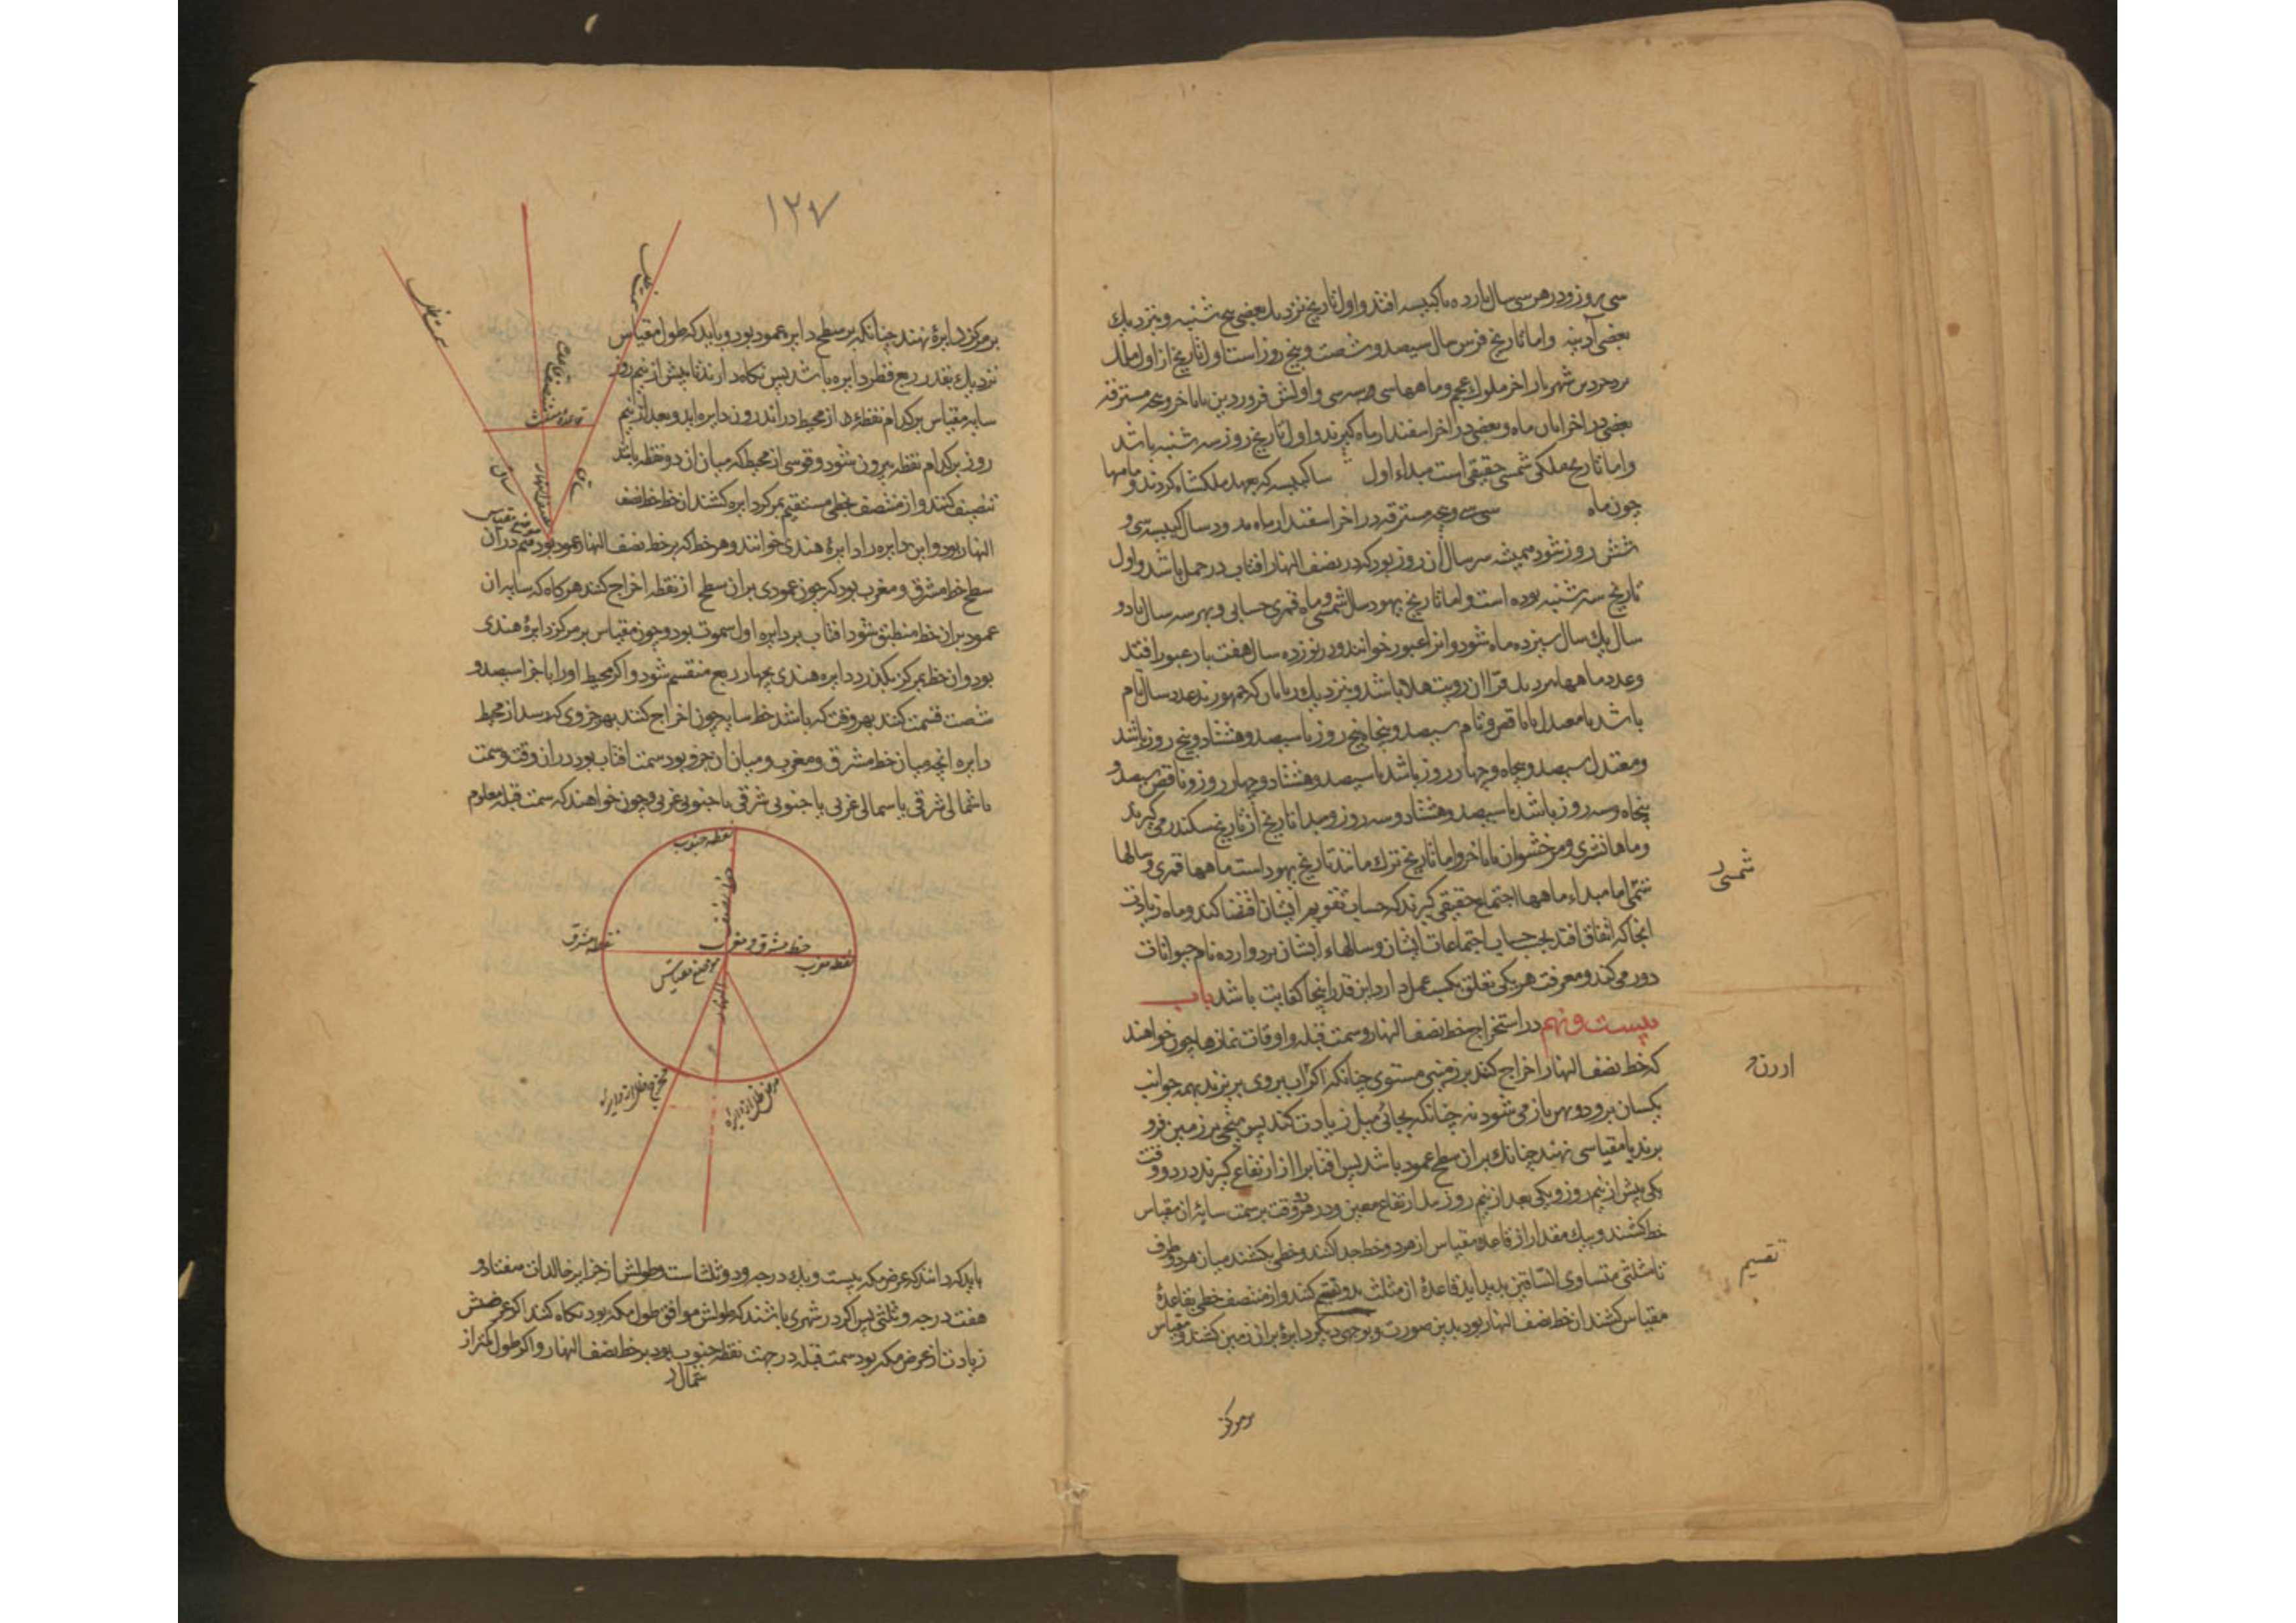 سی روز و در هر سی سال یازده بار کبیسه افتد و اول تاریخ نزدیک بعضی پنج شنبه و نزدیک
بعضی آدینه و اما تاریخ فرس سال سیصد و شصت و پنج روز است و اول تاریخ از اول ملک
یزدجرد بن شهریار اخر ملوک عجم و ماهها سی و سه سی و اولش فروردین تا باخر و خمسه مسترقه
بعضی در اخر ابان ماه و بعضی در اخر اسفندارماه گیرند و اول تاریخ روز سه شنبه باشد
و اما تاریخ ملکی شمسی حقیقی است مبداء اول سا کبیسه که بعهد ملکشاه کردند و ماهها
چون ماه سی سی و خمسه مسترقه در اخر اسفندارماه و در سال کبیسه سی و
شش روز شود همیشه سر سال ان روز بود که در نصف النهار افتاب در حمل باشد و اول
تاریخ سه شنبه بوده است و اما تاریخ یهود سال شمسی و ماه قمری حسابی و بهر سه سال یا دو
سال یک سال سیزده ماه شود و انرا عبور خوانند و در نوزده سال هفت بار عبور افتد
و عدد ماهها نزدیک قراان رویت هلال باشد و نزدیک ربانان که جمهورند عدد سال تام
باشد یا معتدل یا ناقص و تام سیصد و پنجاه پنج روز یا سیصد و هشتاد و پنج روز باشد
و معتدل سیصد و پنجاه و چهار روز باشد یا سیصد و هشتاد و چهار روز و ناقص سیصد و
پنجاه و سه روز باشد یا سیصد و هشتاد و سه روز و مبدا تاریخ از تاریخ سکندر می گیرند
و ماهها تشری و مرخشوان تا باخر و اما تاریخ ترک مانند تاریخ یهود است ماهها قمری و سالها
شمسی اما مبداء ماهها اجتماع حقیقی گیرند که حساب تقویم ایشان اقتضا کند و ماه زیادتی
انجا که اتفاق افتد بحسب حساب اجتماعات ایشان و سالهاء ایشان بر دوازده نام حیوانات
دور می کند و معرفت هر یکی تعلق بکسب عمل دارد این قدر اینجا کفایت باشد باب
بیست و نهم در استخراج خط نصف النهار و سمت قبله و اوقات نمازها چون خواهند
که خط نصف النهار اخراج کنند بر زمینی مستوی چنانکه اگر اب بروی بریزند بهمه جوانب
یکسان برود و پهن باز می شود نه چنانکه بجائی میل زیادت کند پس میخی بر زمین فرو
برند یا مقیاسی نهند چنانک بران سطح عمود باشد پس افتاب را از ارتفاع گیرند در دو وقت
یکی پیش از نیم روز و یکی بعد از نیم روز بیک ارتفاع معین و در هر دو وقت بر سمت سایه ان مقیاس
خط کشند و بیک مقدار از قاعده مقیاس از هر دو خط جدا کنند و خطی بکشند میان هر دو طرف
تا مثلثی متساوی الساقین پدید اید قاعدهٔ ان مثلث بدو قسم کنند و از منتصف خطی بقاعدهٔ
مقیاس کشند ان خط نصف النهار بود بدین صورت و بوجهی دیگر دایرهٔ بران زمین کشند و مقیاس
شمسی
تقسیم
بر مرکز
۱۲۷
بر مرکز دایرهٔ نهند چنانکه بر سطح دایره عمود بود و باید که طول مقیاس
نزدیک بقدر ربع قطر دایره باشد پس نگاه دارند تا پیش از نیم روز
سایه مقیاس بر کدام نقطهٔ از محیط در اندرون دایره اید و بعد از نیم
روز بر کدام نقطه بیرون شود و قوسی از محیط که میان ان دو نقطه باشد
تنصیف کنند و از منتصف خطی مستقیم بمرکز دایره کشند ان خط خط نصف
النهار بود و این دایره را دایرهٔ هندی خوانند و هر خط که بر خط نصف النهار عمود بود هم در ان
سطح خط مشرق و مغرب بود که چون عمودی بران سطح از نقطه اخراج کنند هرگاه که سایه ان
عمود بران خط منطبق شود افتاب بر دایره اول سموت بود و چون مقیاس بر مرکز دایرهٔ هندی
بود و ان خط بمرکز بگذرد دایره هندی بچهار ربع منقسم شود و اگر محیط او را باجزا سیصد و
شصت قسمت کنند بهر وقت که باشد خط سایه چون اخراج کنند بهر جزوی که رسد از محیط
دایره انچه میان خط مشرق و مغرب و میان ان جزو بود سمت افتاب بود در ان وقت و سمت
یا شمالی شرقی یا شمالی غربی یا جنوبی شرقی یا جنوبی غربی و چون خواهند که سمت قبله معلوم
قاعده مثلث
ساق
ساق
خط نصف النهار
موضع مقیاس
نقطه جنوب
خط نصف
النهار
خط مشرق و مغرب
نقطه مشرق
نقطه مغرب
موضع مقیاس
مخرج ظل از دایره
مدخل ظل از دایره
باید که دانند که عرض مکه بیست و یک درجه و دو ثلث است و طولش از جزایر خالدات هفتاد و
هفت درجه و ثلثی پس اگر در شهری باشند که طولش موافق طول مکه بود نگاه کنند اگر عرضش
زیادت از عرض مکه بود سمت قبله در جهت نقطه جنوب بود بر خط نصف النهار و اگر طول کمتر از
شمال